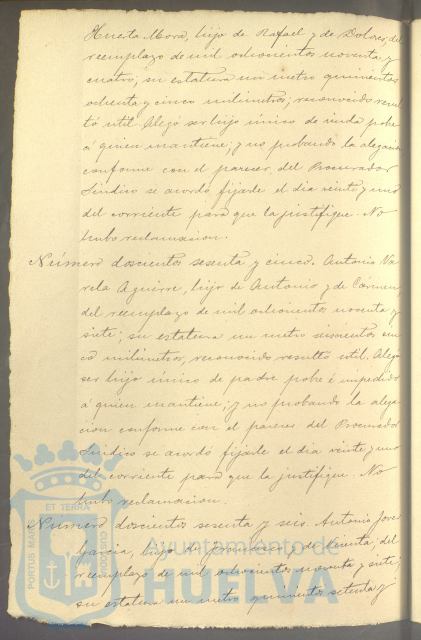 Huesta Mora, hijo de Rafael y de Dolores, del
reemplazo de mil ochocientos noventa y
cuatro; su estatura un metro quinientos
ochenta y cinco milimetros; reconocido resul
tó util. Alegó ser hijo único de viuda pobre
á quien mantiene; y no probando la alegacion
conforme con el parecer del Procurador
Sindico se acordó fijarle el dia veinte y uno
del corriente para que la justifique. No
hubo reclamacion.
Número doscientos sesenta y cinco. Antonio Va
rela Aguirre, hijo de Antonio y de Cármen,
del reemplazo de mil ochocientos noventa y
siete; su estatura un metro seiscientos cin
co milimetros, reconocido resultó util. Alegó
ser hijo único de padre pobre é impedido
á quien mantiene; y no probando la alega
cion conforme con el parecer del Procurador
Sindico se acordó fijarle el dia veinte y uno
del corriente para que la justifique. No
hubo reclamacion.
Número doscientos sesenta y seis. Antonio
Garcia, hijo de Francisco y de del
reemplazo de mil ochocientos noventa y siete;
su estatura un metro quinientos setenta y
PORTUS MARIS ET TERRAE CUSTODIA
Ayuntamiento de
HUELVA